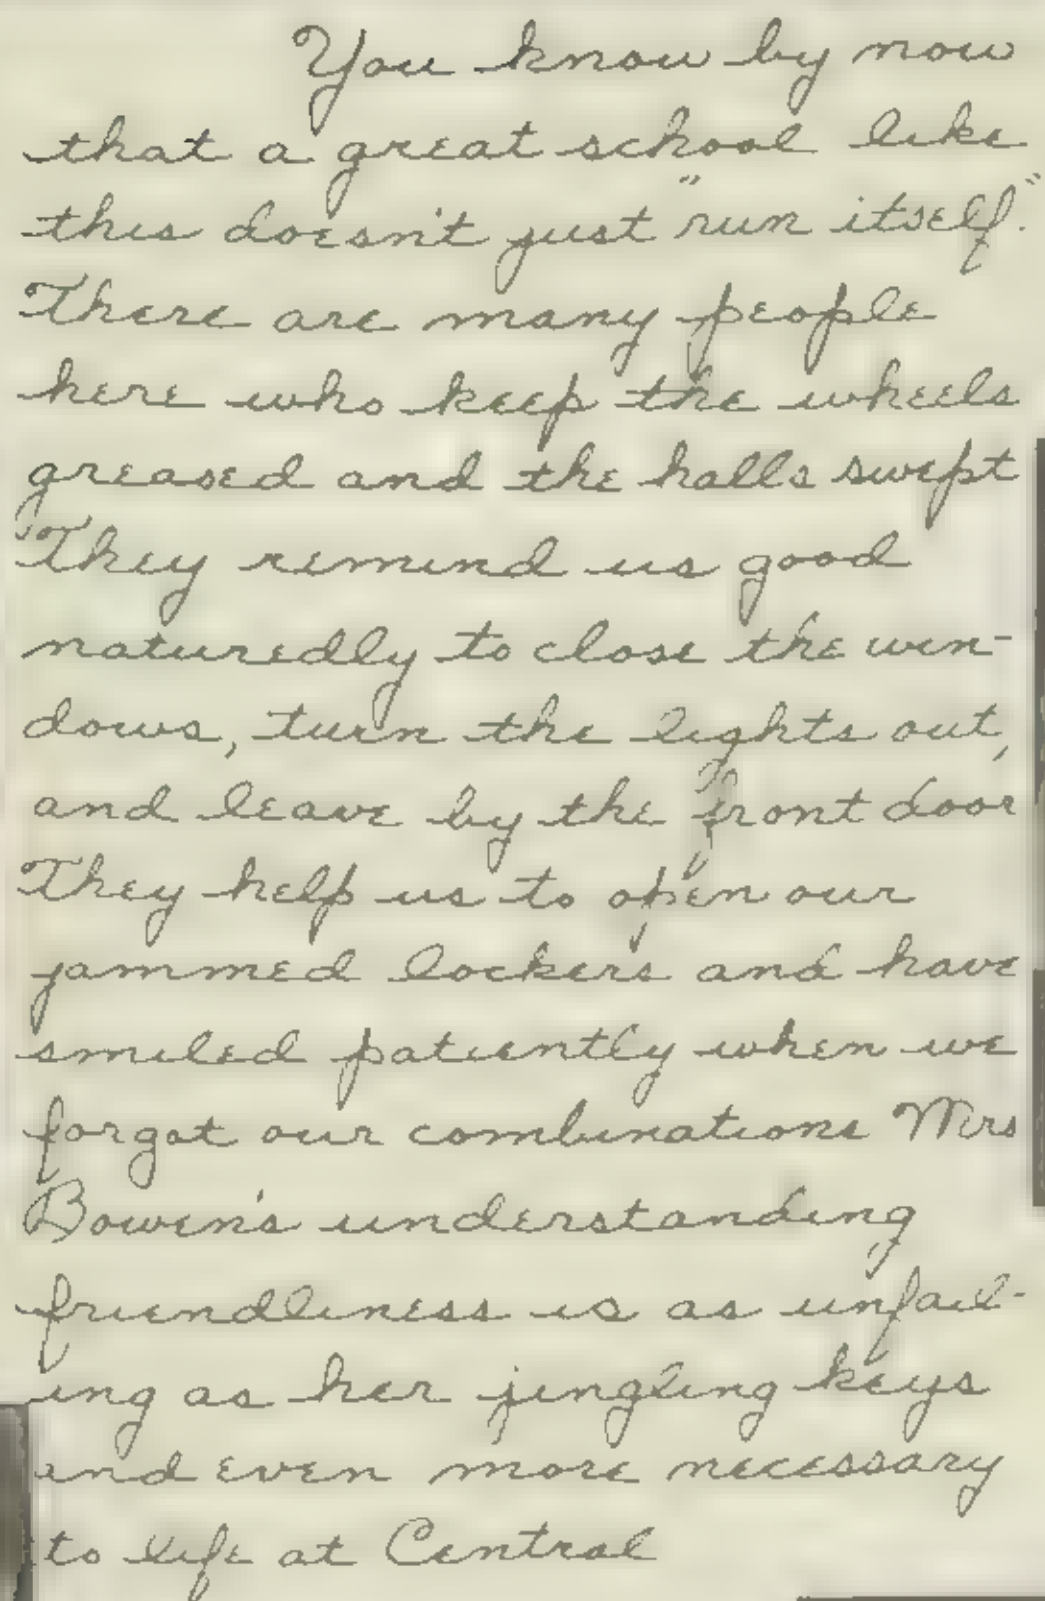 You know by now
that a great school like
this doesn't just "run itself."
There are many people
here who keep the wheels
greased and the halls swept
They remind us good
naturedly to close the win-
dows, turn the lights out,
and leave by the front door
They help us to open our
jammed lockers and have
smiled patiently when we
forgot our combinations Mrs
Bowen's understanding
friendliness is as unfail-
ing as her jingling keys
and even more necessary
to life at Central